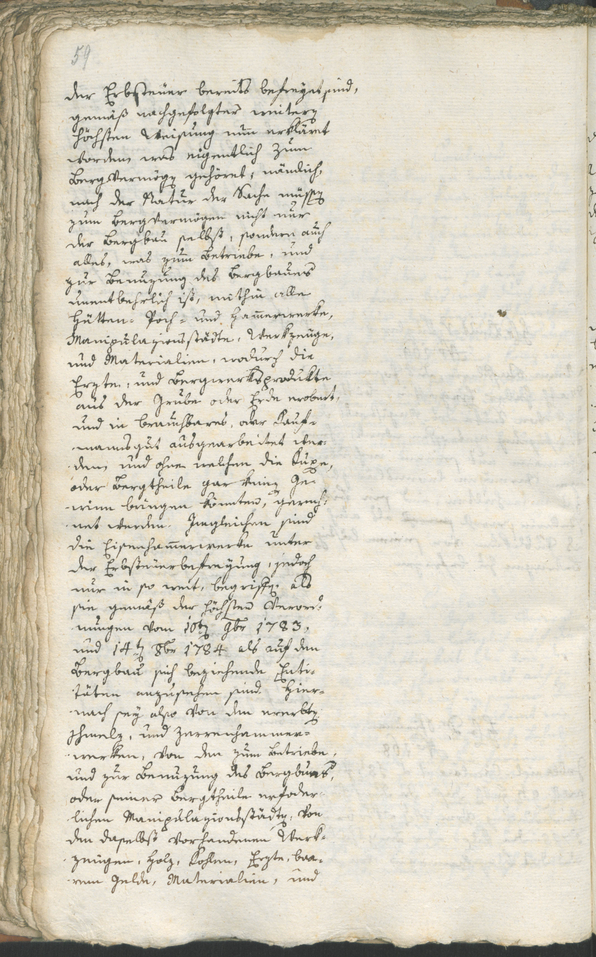 59
der Erbsteuer bereits befreyet sind,
gemäß nachgefolgter weiterer
höchsten Weisung nun erkläret
worden, was eigentlich zum
Bergvermögen gehöret, nämlich,
nach der Natur der Sache müssen
zum Bergvermögen nicht nur
der Bergbau selbst, sondern auch
alles, was zum Betriebe, und
zur Benuzung des Bergbaues
unentbehrlich ist, mithin alle
Hütten- Poch- und Hammerwerke,
Manipulazionsstädte, Werkzeuge,
und Materialien, wodurch die
Erzte, und Bergwerksprodukte
aus der Grube oder Erde erobert,
und in brauchbares, oder Kauf-
mannsgut ausgearbeitet wer-
den, und ohne welchen die Kuxe,
oder Bergtheile gar keinen Ge-
winn bringen könnten, gerech-
net werden. Ingleichen sind
die Eisenhammerwerke unter
der Erbsteuerbefreyung, jedoch
nur in so weit, begriffen, als
sie gemäß der höchsten Verord-
nungen vom 10ten 9br 1783.
und 14ten 8br 1784 als auf den
Bergbau sich beziehende Enti-
täten anzusehen sind. Hier-
nach sey also von den ererbten
Schmelz, und Zerrenhammer-
werken, von den zum Betriebe,
und zur Benuzung des Bergbaues,
oder seiner Bergtheile erfoder-
lichen Manipulazionsstädte, von
den daselbst vorhandenen Werk-
zeugen, Holz, Kohlen, Erzte, baa-
rem Gelde, Materialien, und